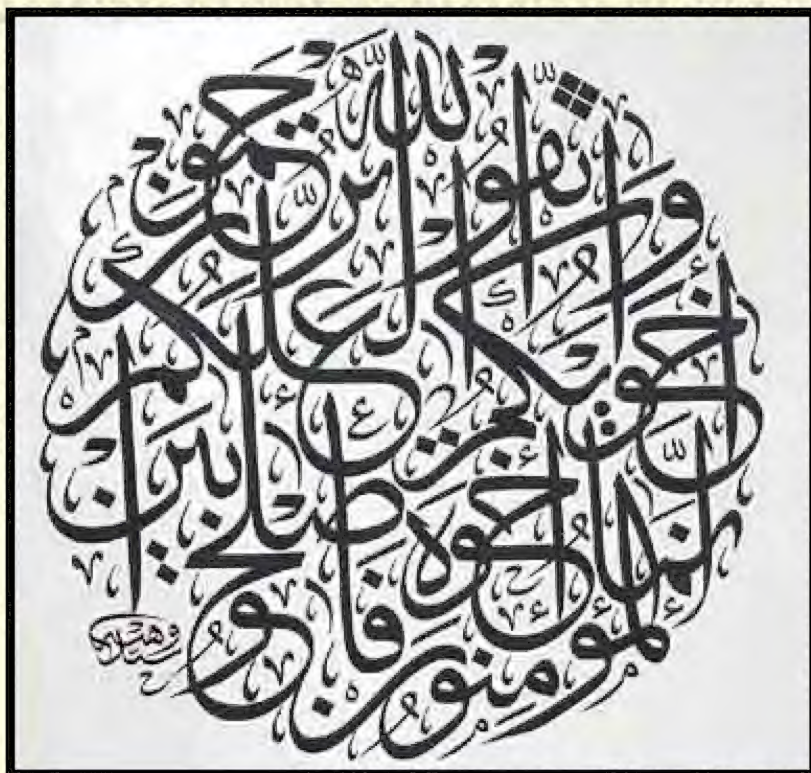 إنما المؤمنون إخوة فأصلحوا بين
أخويكم واتقوا الله لعلكم ترحمون